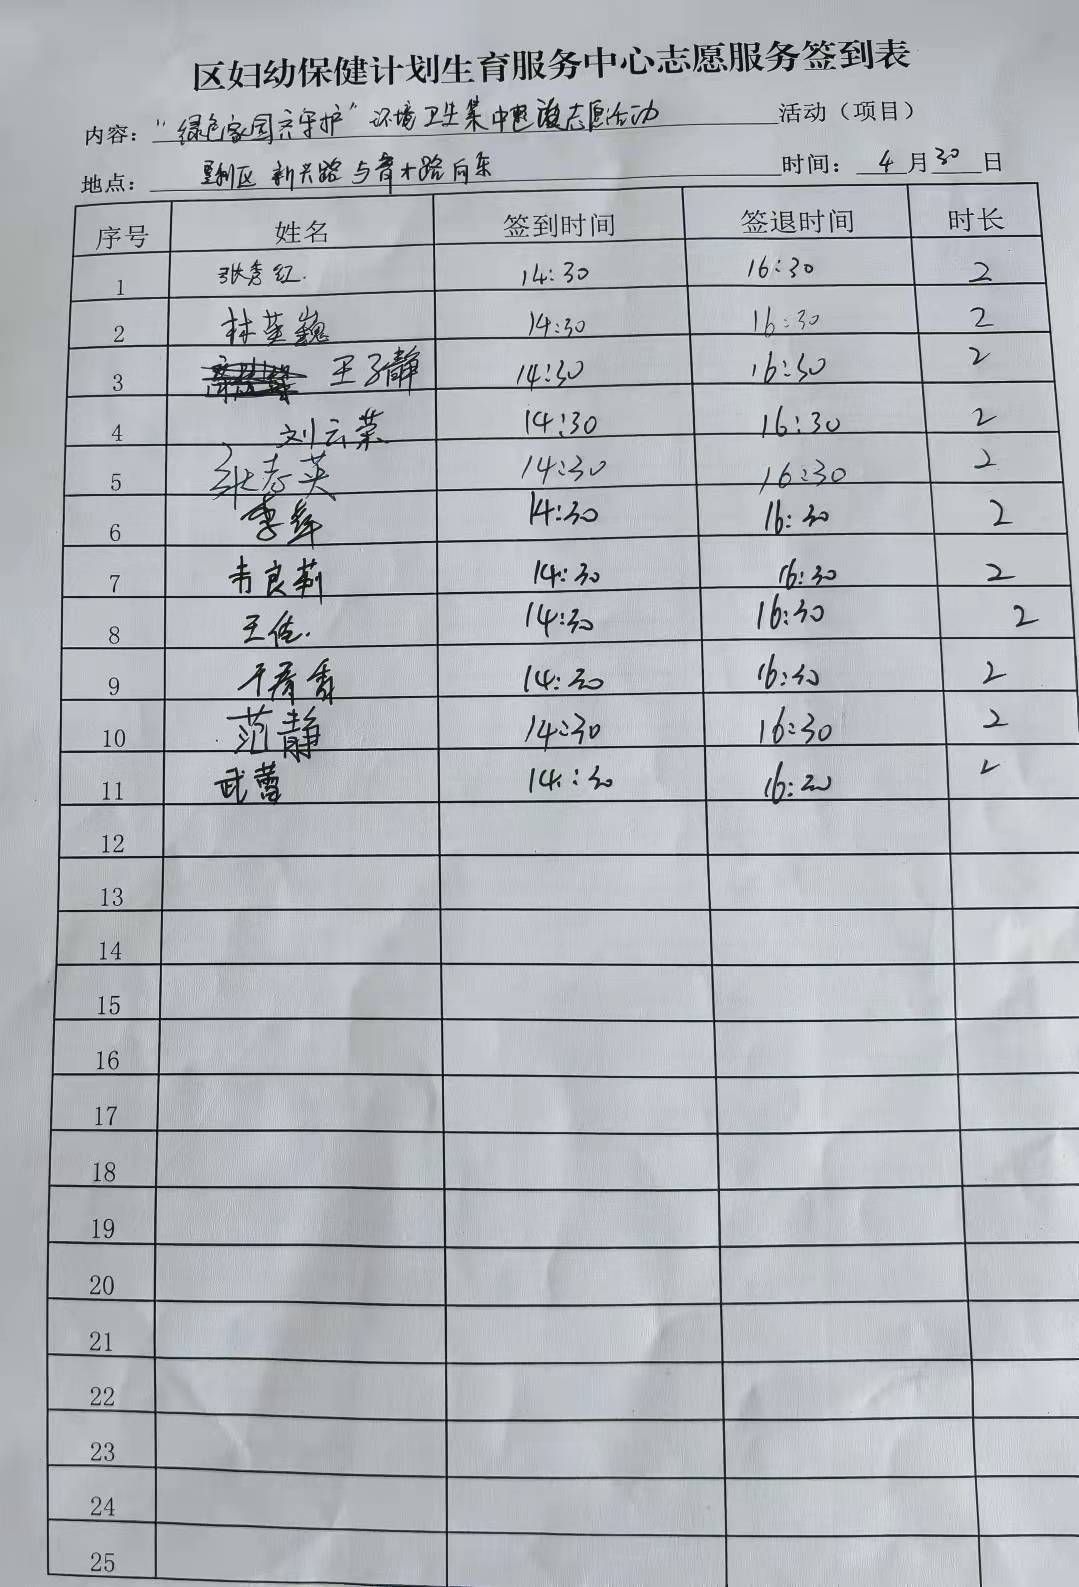 区妇幼保健计划生育服务中心志愿服务签到表
内容："绿色家园共守护"环境卫生集中整治志愿活动 活动（项目）
地点：垦利区 新兴路与 路向东 时间：4月30日
序号 姓名 签到时间 签退时间 时长
1 张秀红 14:30 16:30 2
2 林英巍 14:30 16:30 2
3 王子静 14:30 16:30 2
4 刘云荣 14:30 16:30 2
5 张春英 14:30 16:30 2
6 李 14:30 16:30 2
7 韦良莉 14:30 16:30 2
8 王佐 14:30 16:30 2
9 14:30 16:30 2
10 范静 14:30 16:30 2
11 武蕾 14:30 16:30 2
12
13
14
15
16
17
18
19
20
21
22
23
24
25